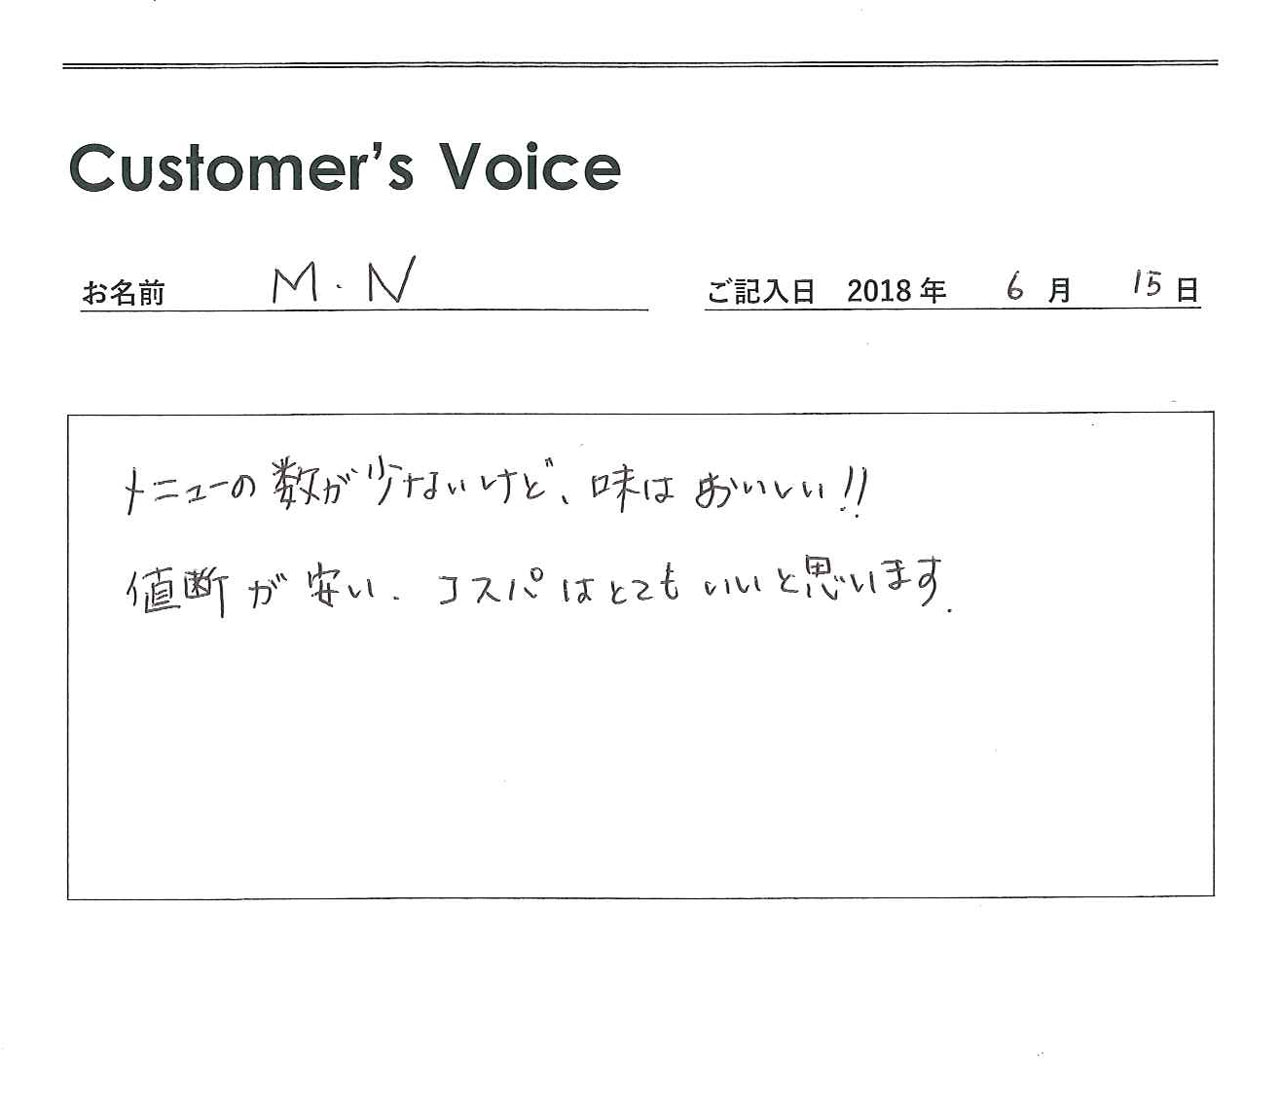 Customer's Voice
お名前 M.N ご記入日 2018年 6月 15日
メニューの数が少ないけど、味はおいしい!!
値断が安い. コスパはとてもいいと思います.